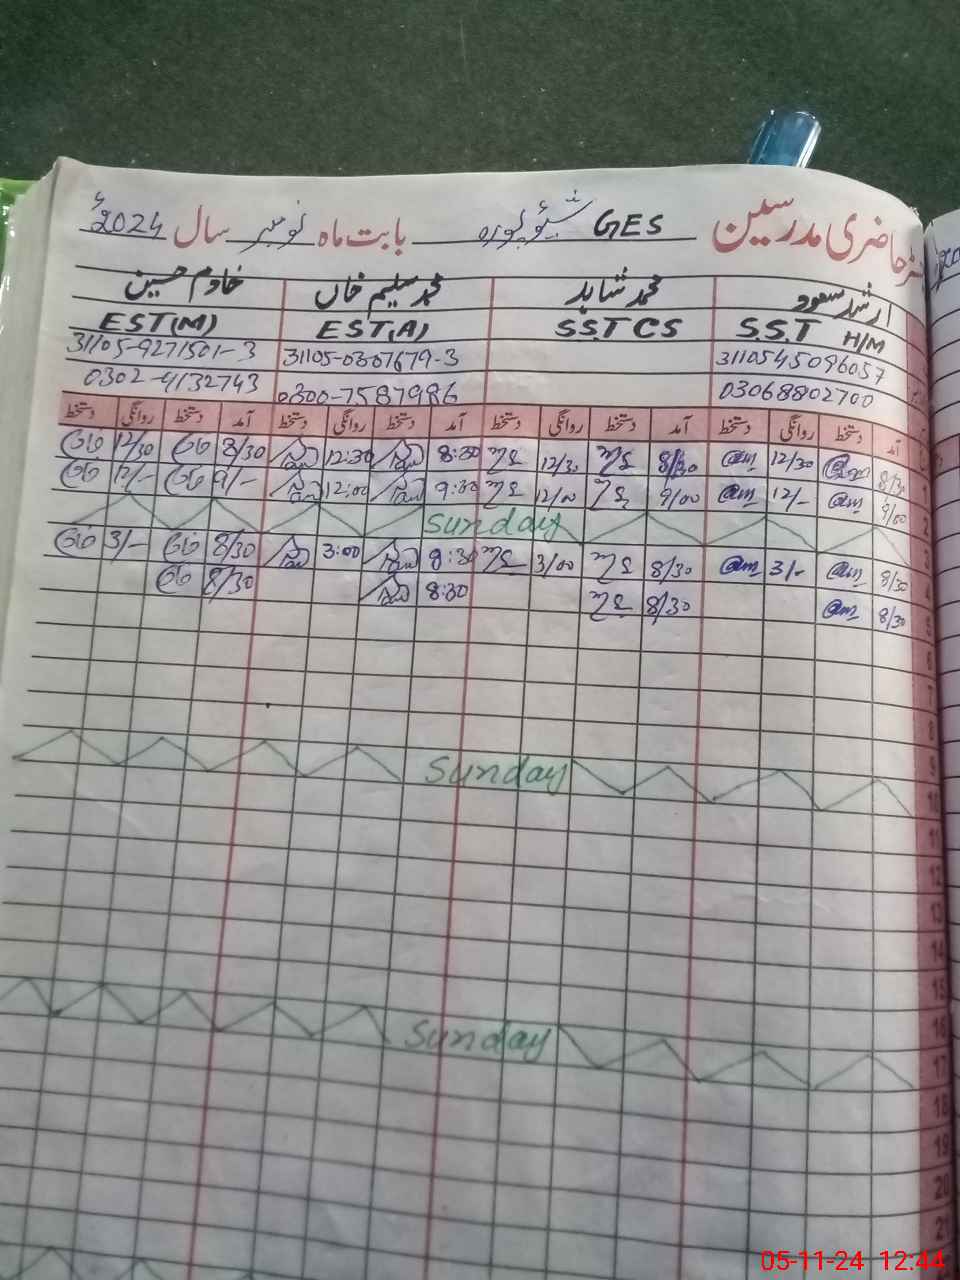 رجسٹر حاضری مدرسین GES شیخوپورہ بابت ماہ نومبر سال 2024ء
ارشد مسعود محمد شاہد محمد سلیم خاں خادم حسین
S.S.T H/M S.S.T CS EST(A) EST(M)
3110545096057 31105-0307679-3 31105-9271501-3
03068802700 0300-7587986 0302-4132743
آمد دستخط روانگی دستخط آمد دستخط روانگی دستخط آمد دستخط روانگی دستخط آمد دستخط روانگی دستخط
1 8/30 12/30 8/30 12/30 8:30 12:30 8/30 12/30
2 9/00 12/- 9/00 12/00 9:30 12:00 9/- 12/-
3 Sunday
4 8/30 3/- 8/30 3/00 8:30 3:00 8/30 3/-
5 8/30 8/30 8:30 8/30
6
7
8
9
10 Sunday
11
12
13
14
15
16
17 Sunday
18
19
20
21
05-11-24 12:44